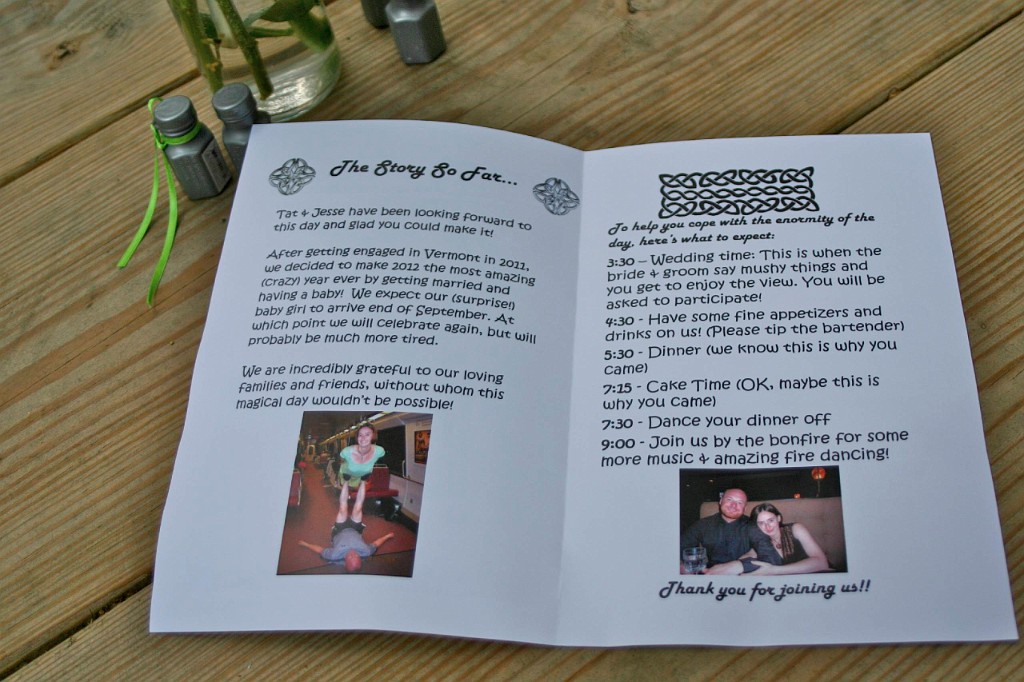 The Story So Far...
Tat & Jesse have been looking forward to
this day and glad you could make it!
After getting engaged in Vermont in 2011,
we decided to make 2012 the most amazing
(crazy) year ever by getting married and
having a baby! We expect our (surprise!)
baby girl to arrive end of September. At
which point we will celebrate again, but will
probably be much more tired.
We are incredibly grateful to our loving
families and friends, without whom this
magical day wouldn't be possible!
To help you cope with the enormity of the
day, here's what to expect:
3:30 – Wedding time: This is when the
bride & groom say mushy things and
you get to enjoy the view. You will be
asked to participate!
4:30 - Have some fine appetizers and
drinks on us! (Please tip the bartender)
5:30 - Dinner (we know this is why you
came)
7:15 - Cake Time (OK, maybe this is
why you came)
7:30 - Dance your dinner off
9:00 - Join us by the bonfire for some
more music & amazing fire dancing!
Thank you for joining us!!